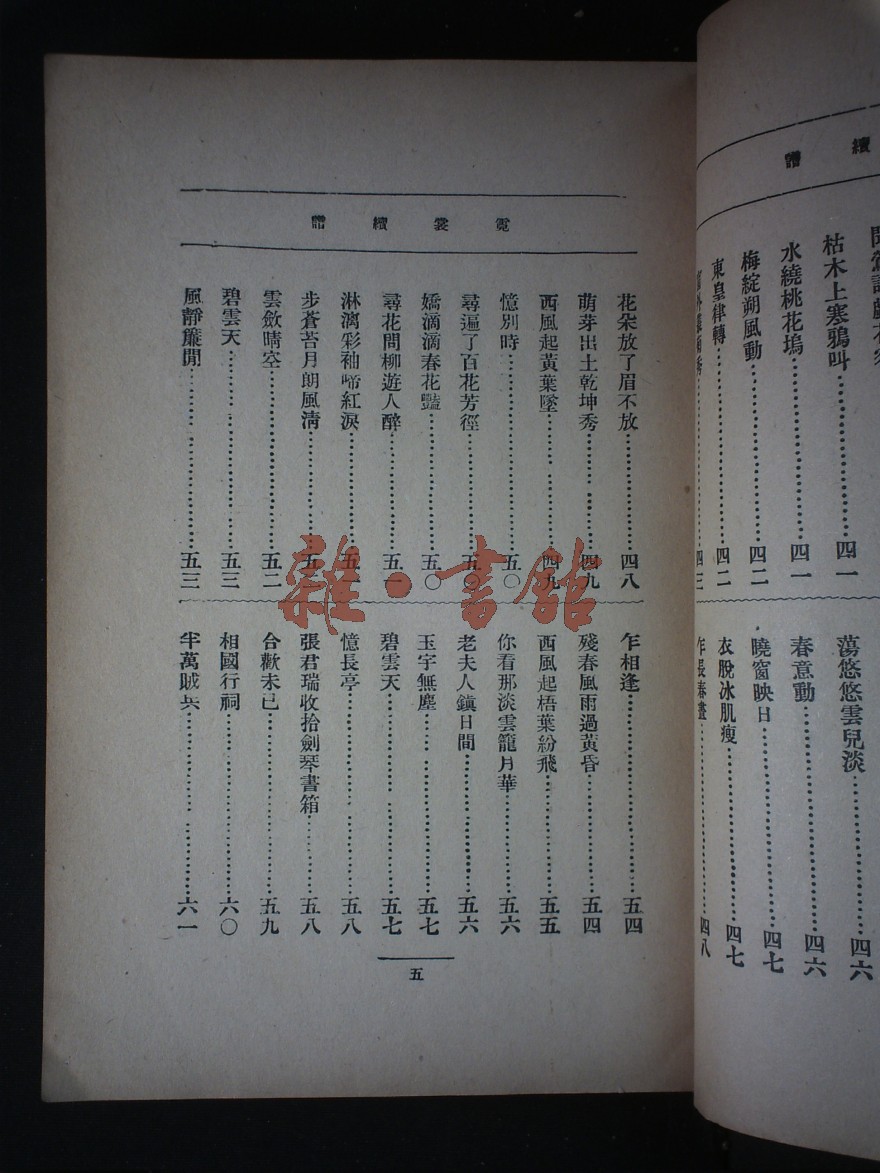 續譜
枯木上寒鴉叫……四一
水繞桃花塢……四一
梅綻朔風動……四二
東皇律轉……四二
四三
蕩悠悠雲兒淡……四六
春意動……四六
曉窗映日……四七
衣脫冰肌瘦……四七
乍長春晝……四八
霓裳續譜
花朵放了眉不放……四八
萌芽出土乾坤秀……四九
西風起黃葉墜……四九
憶別時……五〇
尋遍了百花芳徑……五〇
嬌滴滴春花豔……五〇
尋花問柳遊人醉……五一
淋漓彩袖啼紅淚……五
步蒼苔月朗風清……五
雲斂晴空……五二
碧雲天……五三
風靜簾閒……五三
乍相逢……五四
殘春風雨過黃昏……五四
西風起梧葉紛飛……五五
你看那淡雲籠月華……五六
老夫人鎮日間……五六
玉宇無塵……五七
碧雲天……五七
憶長亭……五八
張君瑞收拾劍琴書箱……五八
合歡未已……五九
相國行祠……六〇
半萬賊兵……六一
五
雜·書館